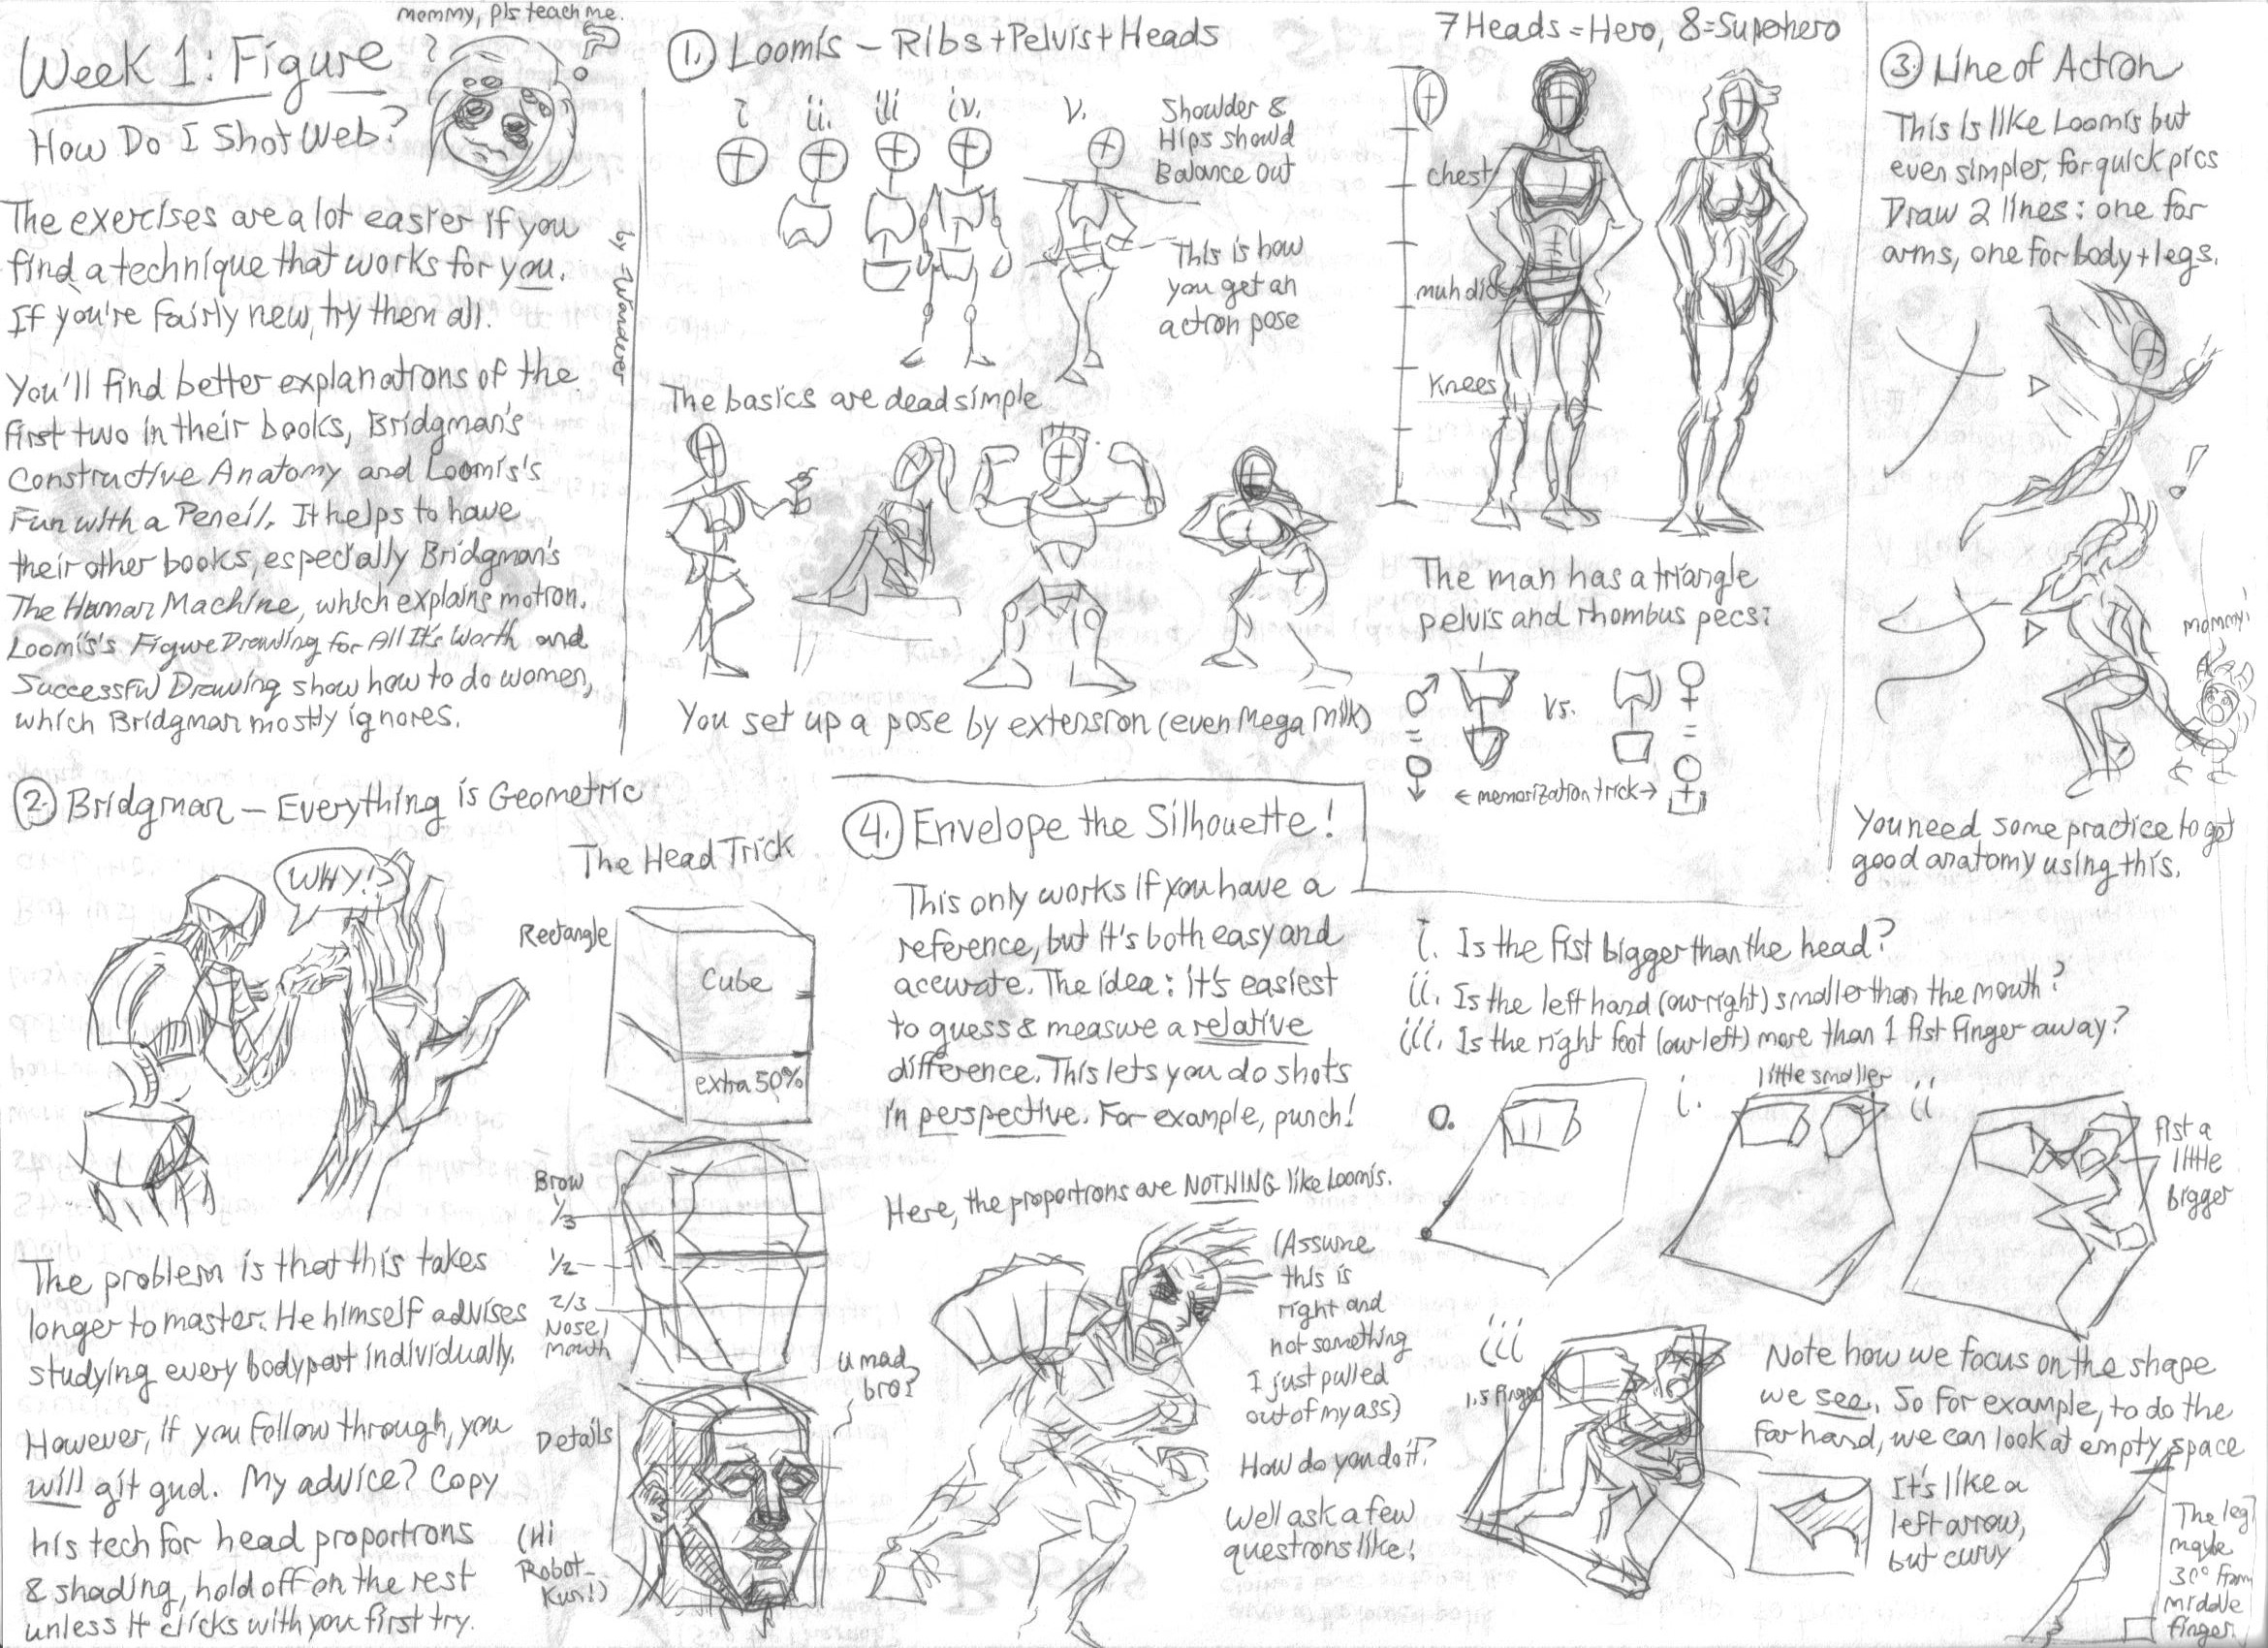 mommy, pls teach me.
Week 1: Figure
?
How Do I Shot Web?
The exercises are a lot easier if you
find a technique that works for you.
If you're fairly new, try them all.
You'll find better explanations of the
first two in their books, Bridgman's
Constructive Anatomy and Loomis's
Fun with a Pencil. It helps to have
their other books, especially Bridgman's
The Human Machine, which explains motion.
Loomis's Figure Drawing for All It's Worth and
Successful Drawing show how to do women,
which Bridgman mostly ignores.
by Wanderer
1. Loomis - Ribs + Pelvis + Heads
i ii. iii iv. v.
Shoulder &
Hips should
Balance out
This is how
you get an
action pose
The basics are dead simple
You set up a pose by extension (even Mega Milk)
7 Heads = Hero, 8 = Superhero
chest
muh dick
Knees
The man has a triangle
pelvis and rhombus pecs:
♂ vs. ♀
= =
← memorization trick →
3. Line of Action
This is like Loomis but
even simpler, for quick pics
Draw 2 lines: one for
arms, one for body + legs.
!
mommy!
You need some practice to get
good anatomy using this.
2. Bridgman - Everything is Geometric
WHY!?
The Head Trick
Rectangle
Cube
extra 50%
Brow
1/3
1/2
2/3
Nose/
mouth
Details
u mad
bro?
(Hi
Robot-
Kun!)
The problem is that this takes
longer to master. He himself advises
studying every bodypart individually.
However, if you follow through, you
will git gud. My advice? Copy
his tech for head proportions
& shading, hold off on the rest
unless it clicks with you first try.
4. Envelope the Silhouette!
This only works if you have a
reference, but it's both easy and
accurate. The idea: it's easiest
to guess & measure a relative
difference. This lets you do shots
in perspective. For example, punch!
Here, the proportions are NOTHING like Loomis.
(Assume
this is
right and
not something
I just pulled
out of my ass)
How do you do it?
Well ask a few
questions like:
i. Is the fist bigger than the head?
ii. Is the left hand (our right) smaller than the mouth?
iii. Is the right foot (our left) more than 1 fist finger away?
0.
i.
little smaller
ii
fist a
little
bigger
iii
1.5 finger
Note how we focus on the shape
we see. So for example, to do the
far hand, we can look at empty space
It's like a
left arrow,
but curvy
The leg?
maybe
30° from
middle
finger.